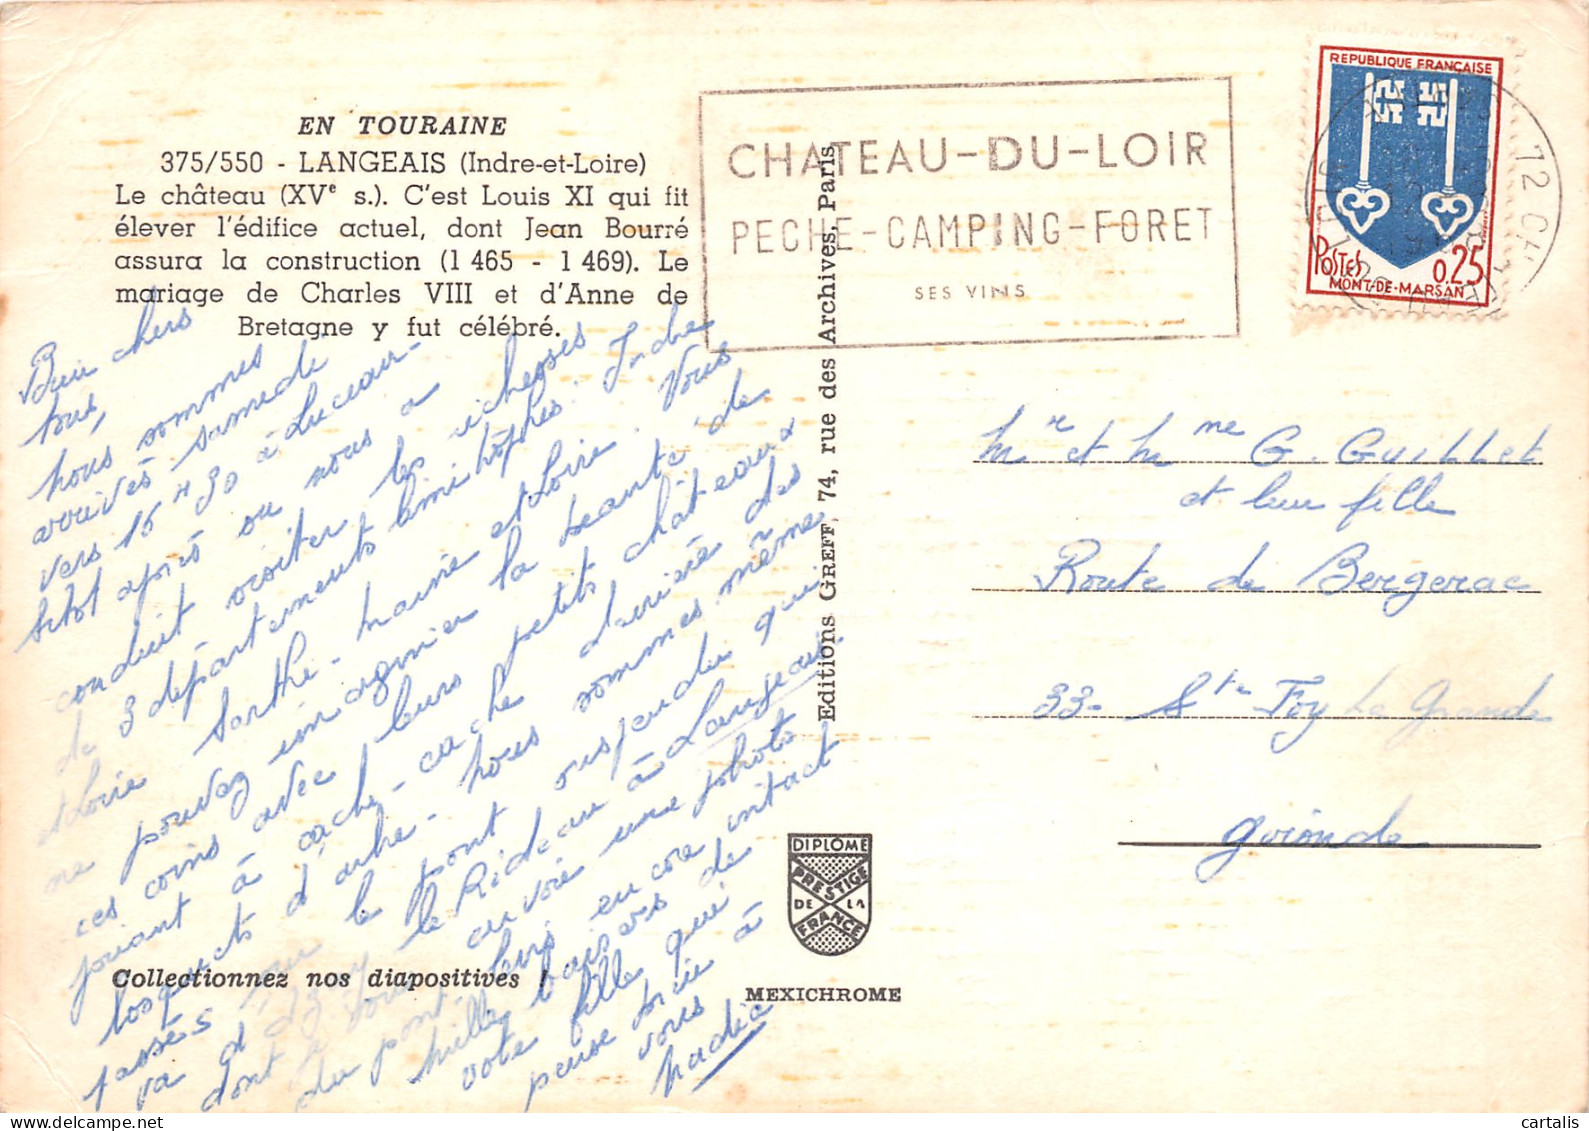 EN TOURAINE
375/550 - LANGEAIS (Indre-et-Loire)
Le château (XVe s.). C'est Louis XI qui fit
élever l'édifice actuel, dont Jean Bourré
assura la construction (1 465 - 1 469). Le
mariage de Charles VIII et d'Anne de
Bretagne y fut célébré.
Bien chers
tous,
nous sommes
arrivés samedi
vers 15 H 30 à Luceau -
sitot après on nous a
conduit visiter les richesses
de 3 départements limitrophes. Indre
et Loire Sarthe - Maine et Loire. Vous
ne pouvez imaginer la beauté de
ces coins avec leurs petits châteaux
jouant à cache-cache derrière des
bosquets d'arbre - nous sommes même
passés sur le pont suspendu qui
va à Langeais
dont le Rideau
du pont. envoie une photo
mille baisers de
votre fille qui
pense à
vous
Nadia
Collectionnez nos diapositives !
Editions GREFF, 74, rue des Archives, Paris
CHATEAU-DU-LOIR
PECHE-CAMPING-FORET
SES VINS
REPUBLIQUE FRANÇAISE
POSTES
0,25
MONT-DE-MARSAN
72
Mr et Mme G. Guillet
et leur fille
Route de Bergerac
33- Ste Foy La Grande
Gironde
DIPLÔME
PRESTIGE
DE LA
FRANCE
MEXICHROME
cartalis